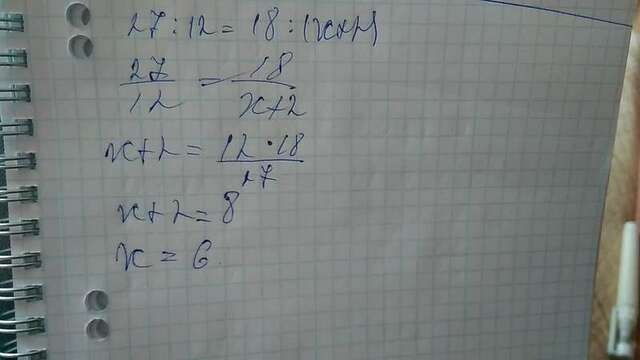 27 : 12 = 18 : (x+2)
27/12 = 18/x+2
x+2 = 12·18/27
x+2 = 8
x = 6